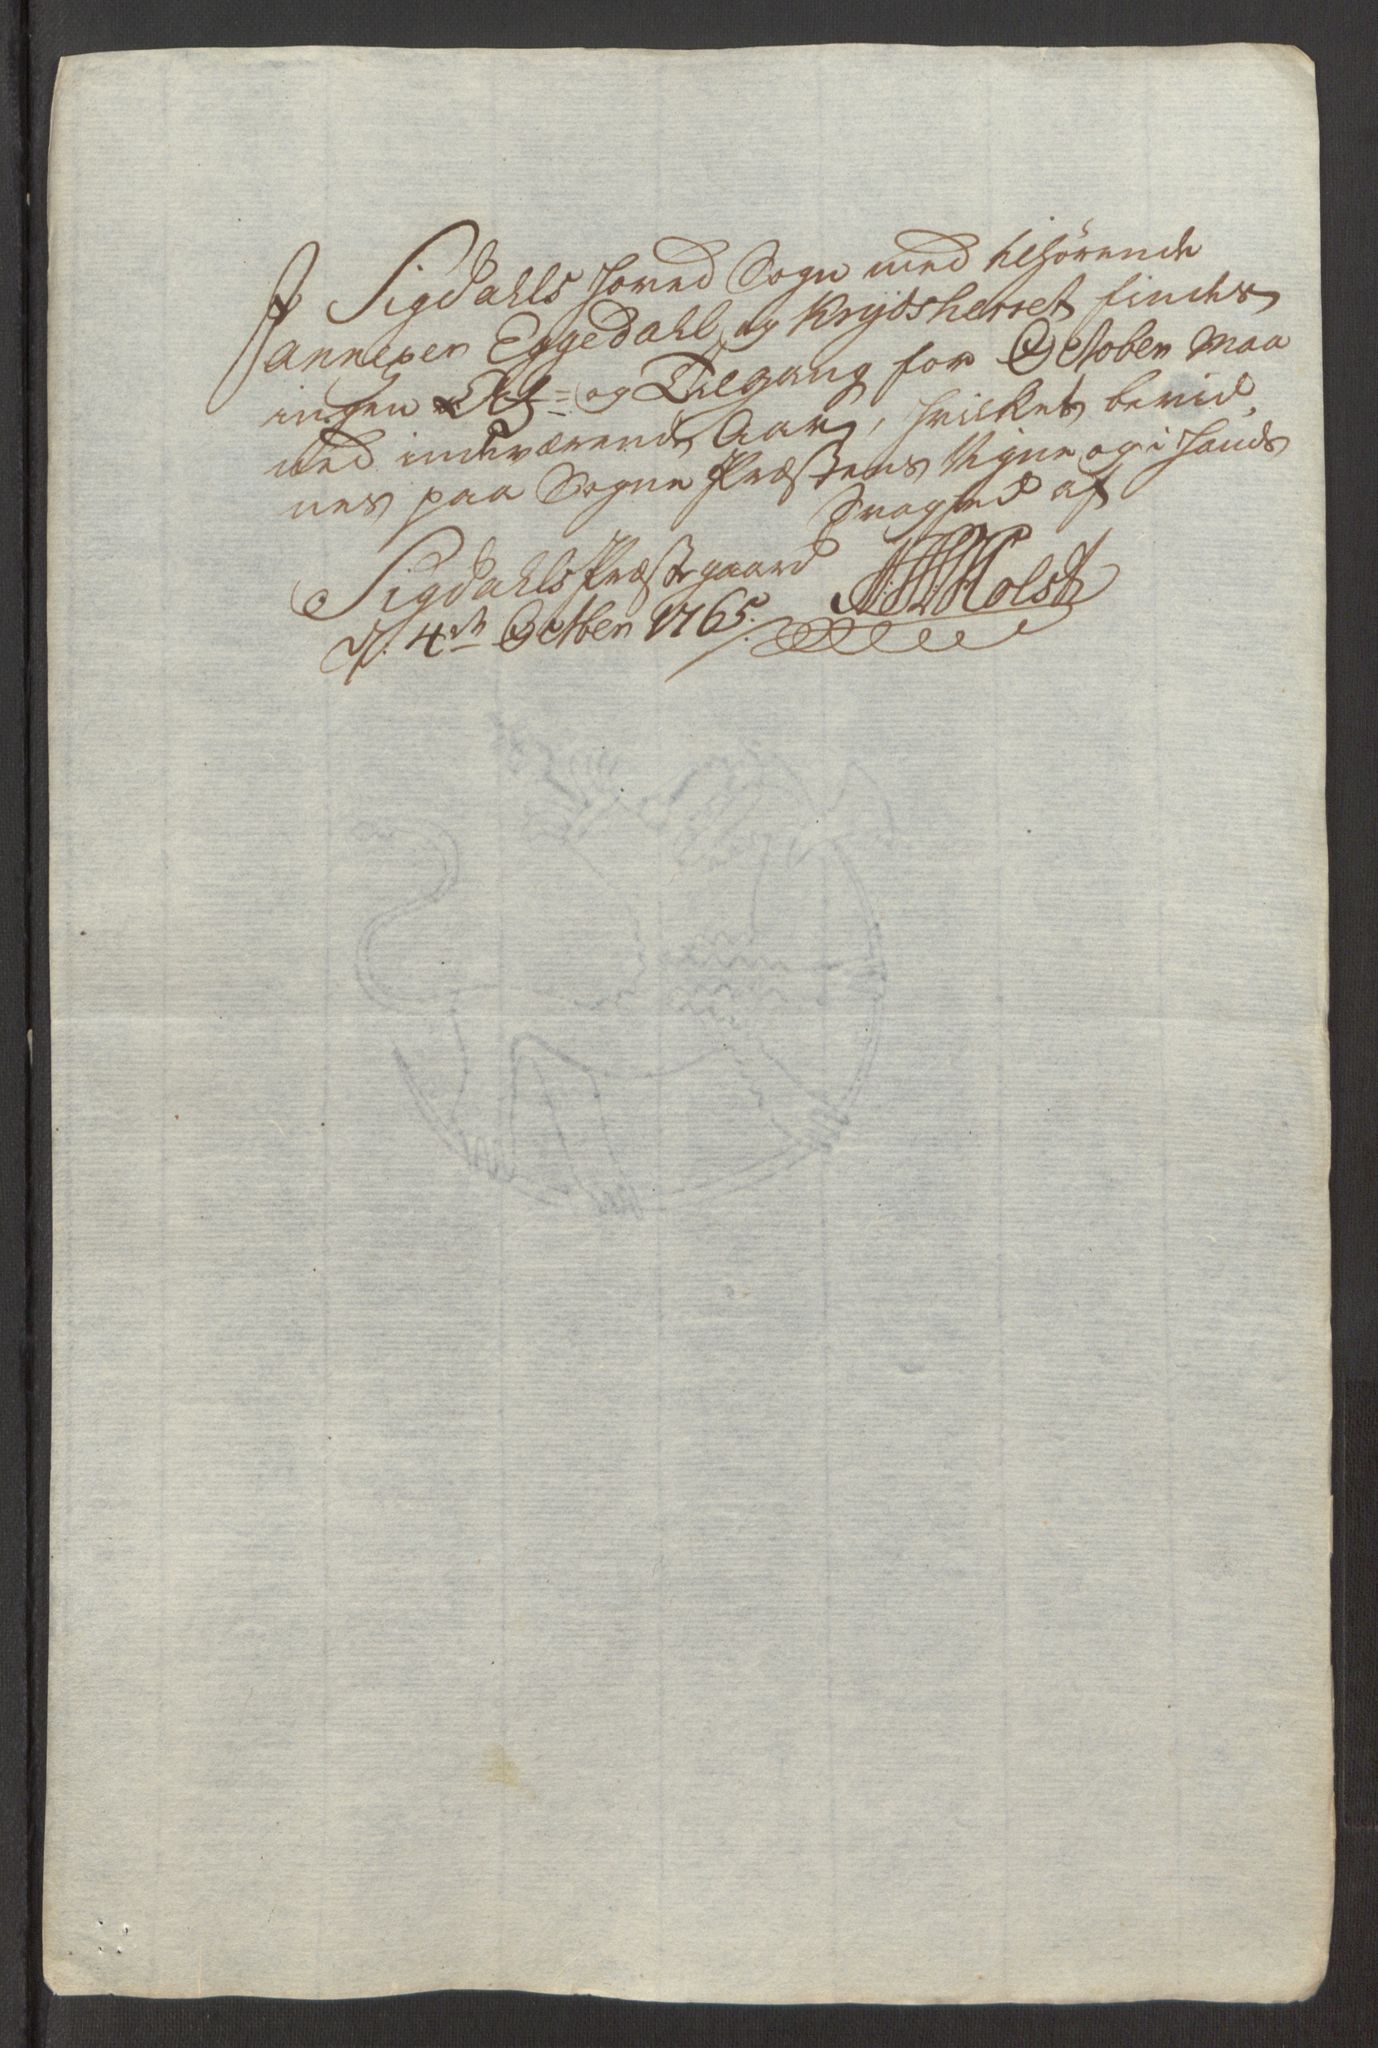 I Sigdahls Hoved Sogn med tilhörende
annexer Eggedahl og Krydsherret findes
ingen Af- og Tilgang for October Maa
ned indeværende Aar, hvilket bevid,
nes paa Sogne Præstens Vegne og i hands
Svaghed af
Sigdahls Præstegaard
d. 4de Octber 1765.
Holst